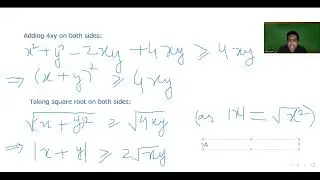 Adding 4xy on both sides:
x² + y² - 2xy + 4xy ≥ 4xy
⇒ (x + y)² ≥ 4xy
Taking square root on both sides:
√(x + y)² ≥ √4xy (as |x| = √x²)
⇒ |x + y| ≥ 2√xy